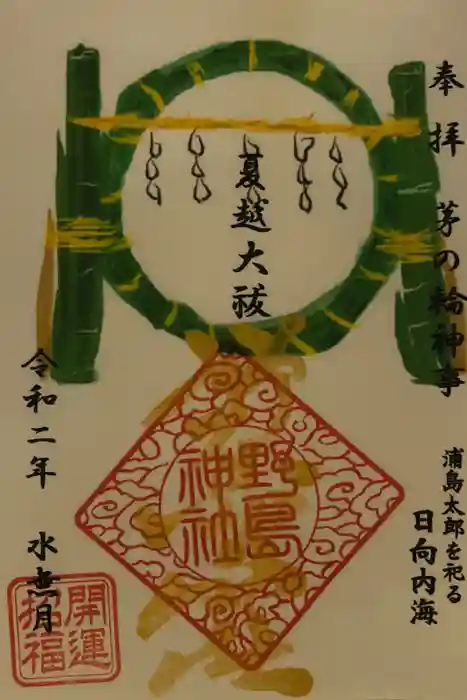 奉拝 茅の輪神事
浦島太郎を祀る
日向内海
夏越大祓
野島
神社
令和二年 水無月
開運
招福